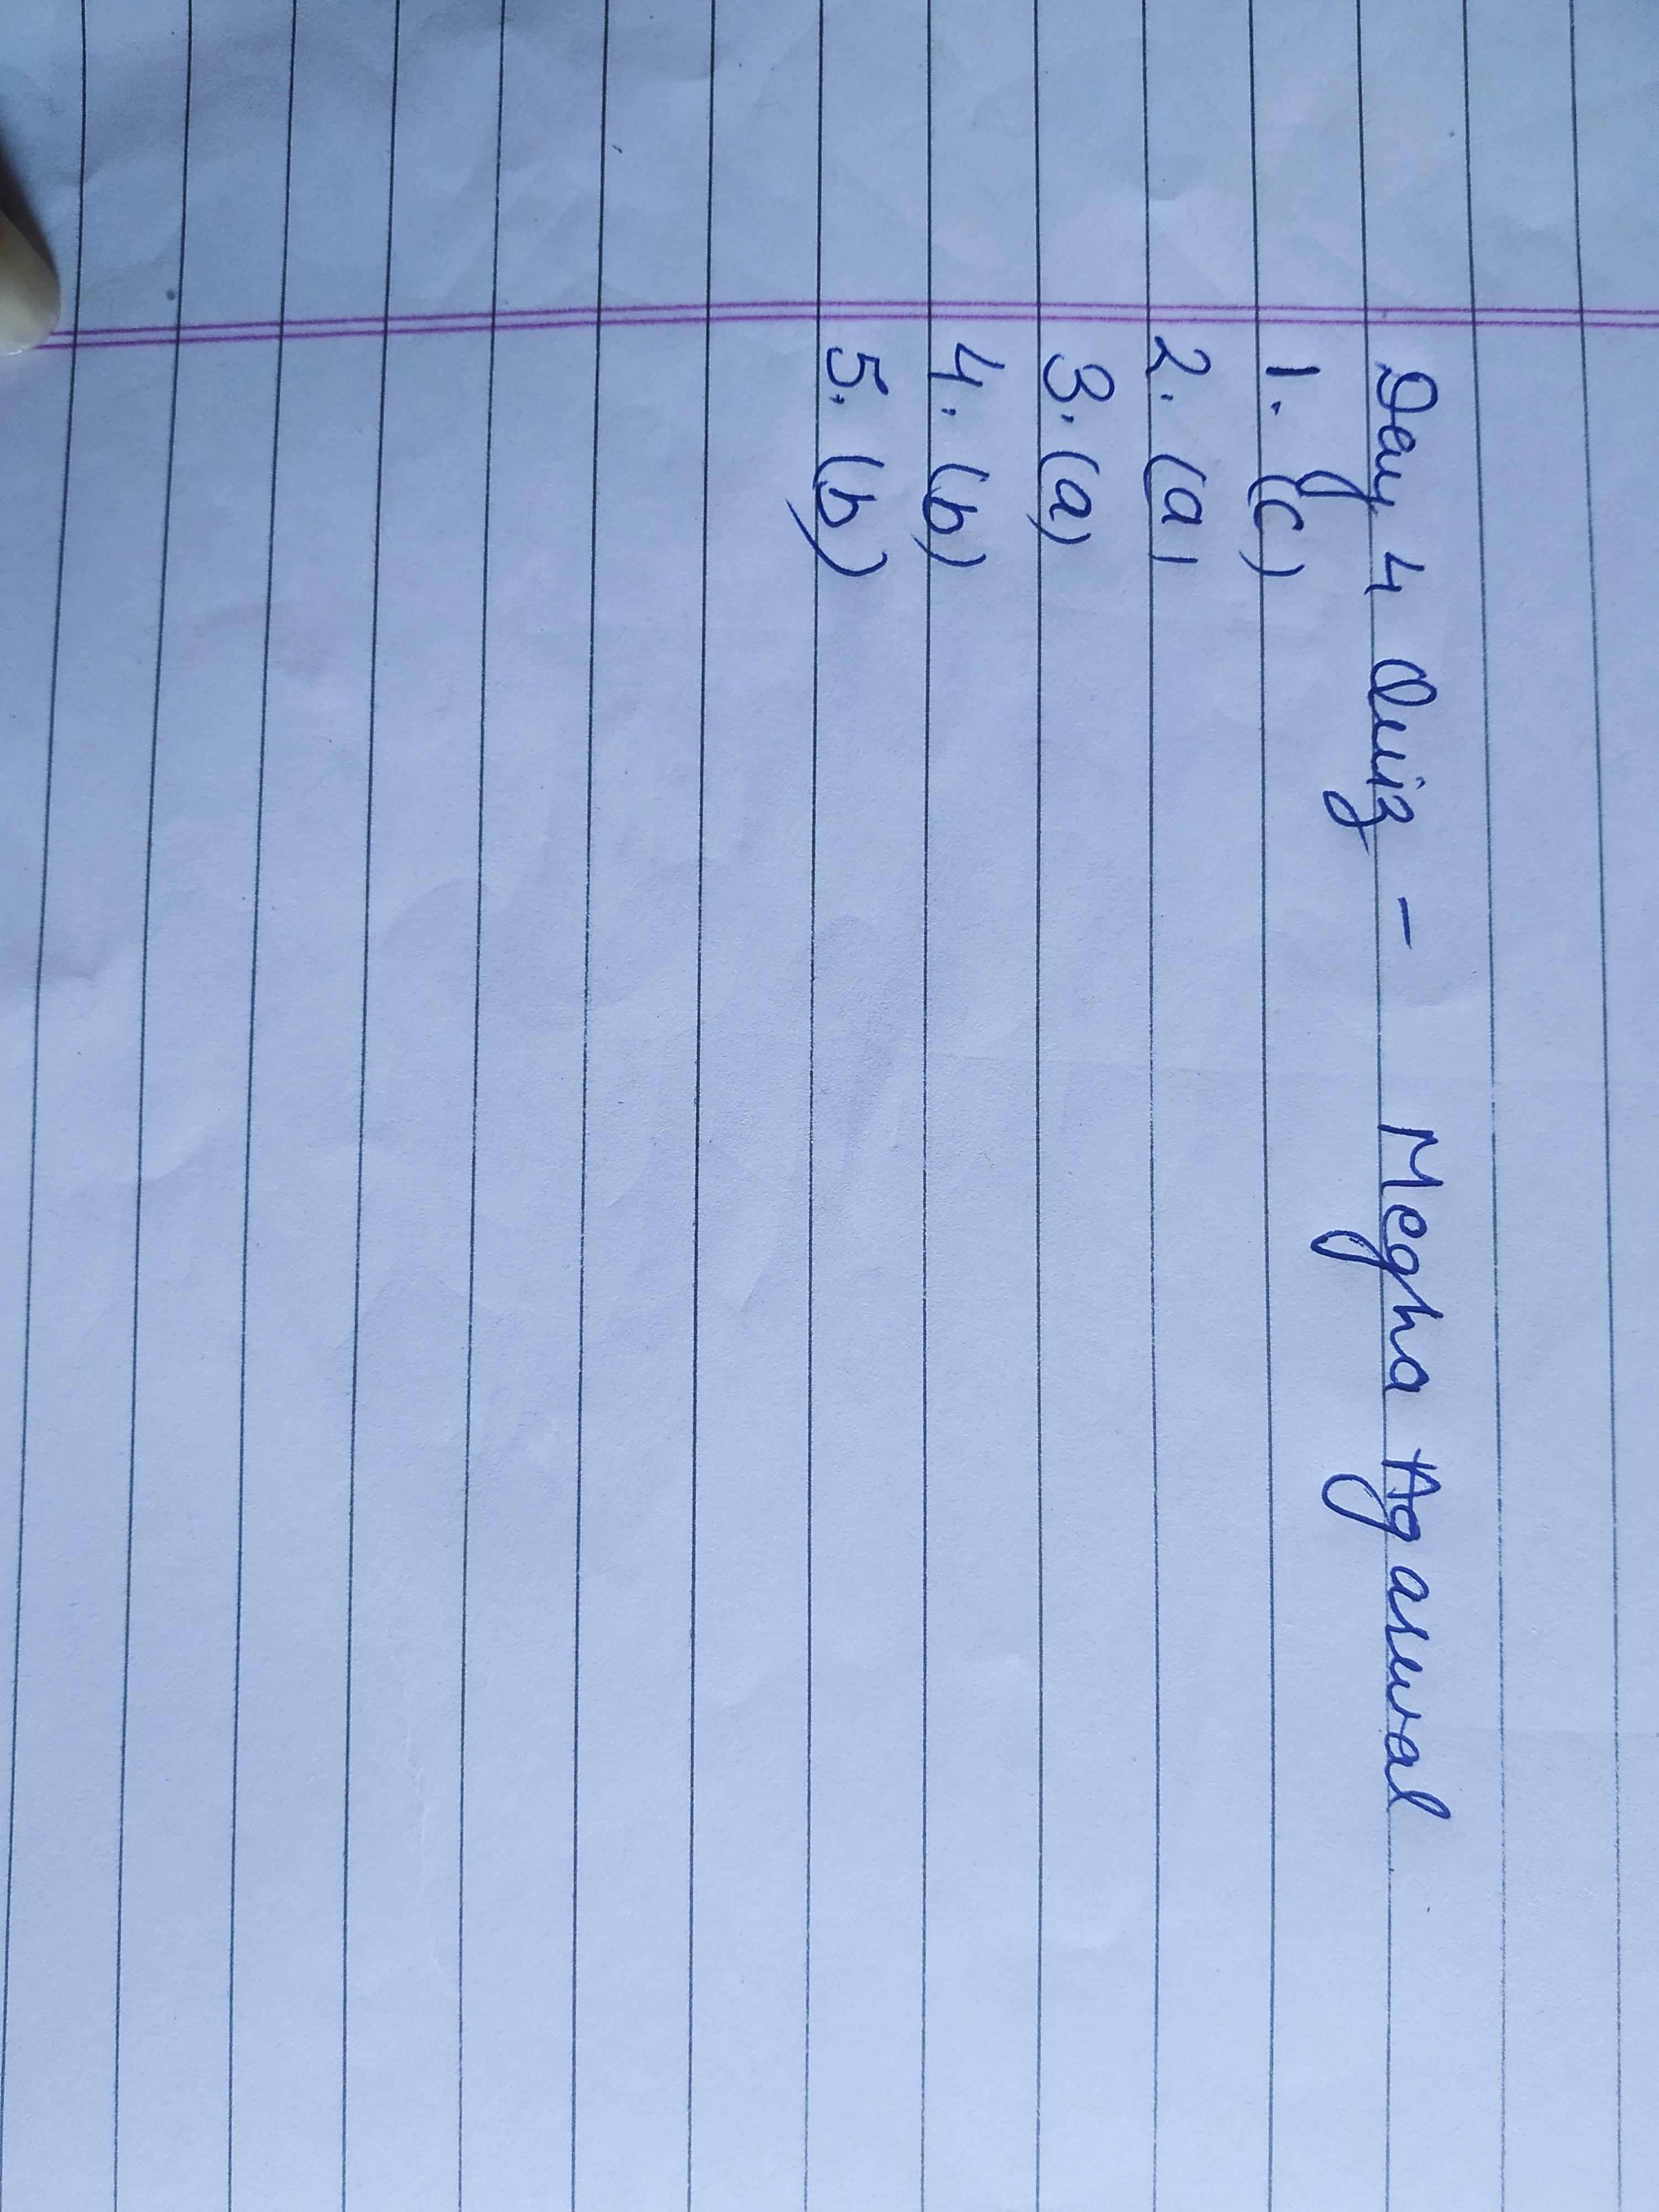 Day 4 Quiz - Megha Agarwal
1. (c)
2. (a)
3. (a)
4. (b)
5. (b)